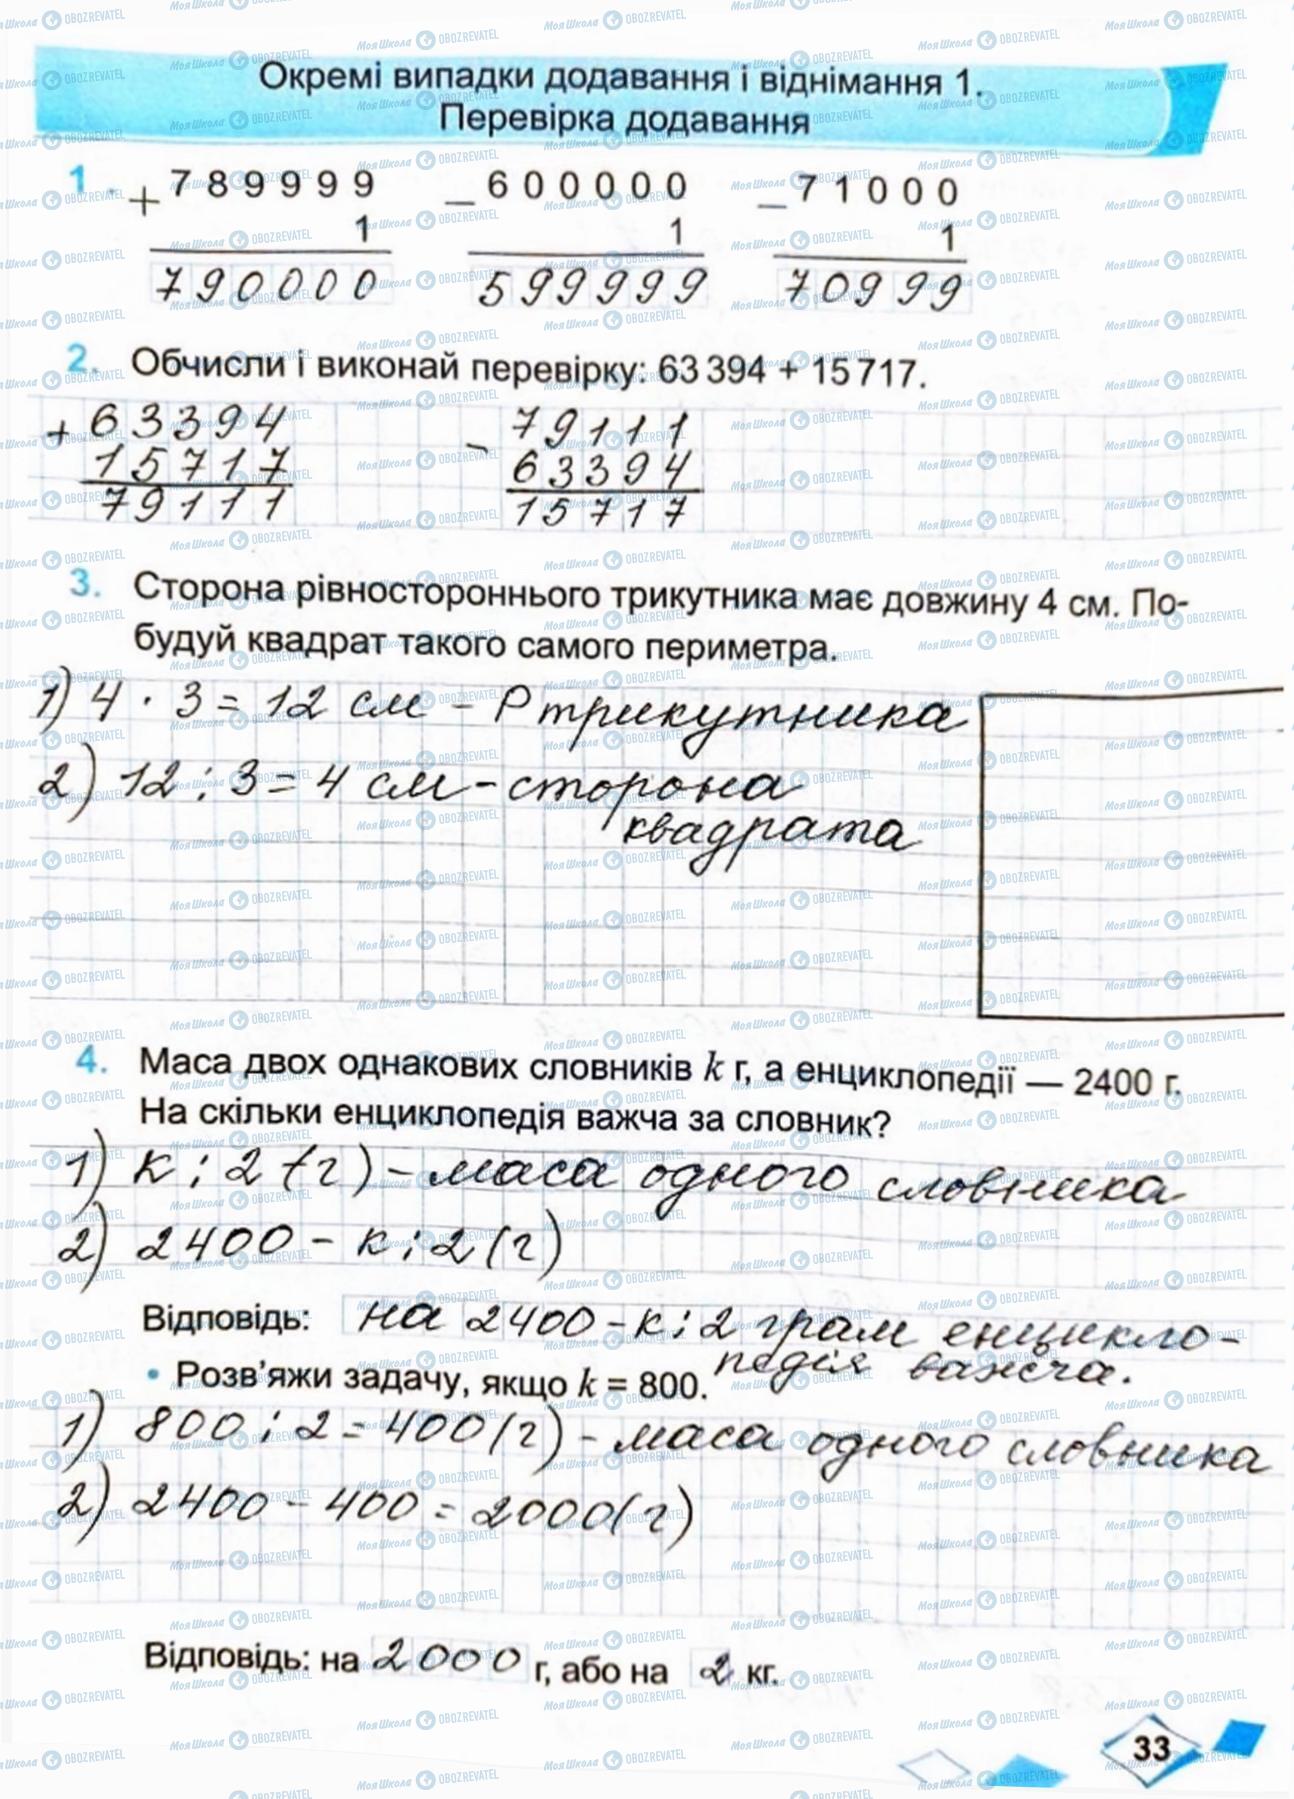 Окремі випадки додавання і віднімання 1.
Перевірка додавання
1. + 789999 − 600000 − 71000
1 1 1
790000 599999 70999
2. Обчисли і виконай перевірку: 63 394 + 15 717.
+ 63394 − 79111
15717 63394
79111 15717
3. Сторона рівностороннього трикутника має довжину 4 см. По-
будуй квадрат такого самого периметра.
1) 4 · 3 = 12 см – Р трикутника
2) 12 : 3 = 4 см – сторона
квадрата
4. Маса двох однакових словників k г, а енциклопедії — 2400 г.
На скільки енциклопедія важча за словник?
1) к : 2 (г) – маса одного словника
2) 2400 – к : 2 (г)
Відповідь: на 2400 – к : 2 грам енцикло-
педія важча.
• Розв’яжи задачу, якщо k = 800.
1) 800 : 2 = 400 (г) – маса одного словника
2) 2400 – 400 = 2000 (г)
Відповідь: на 2000 г, або на 2 кг.
33
МояШкола OBOZREVATEL